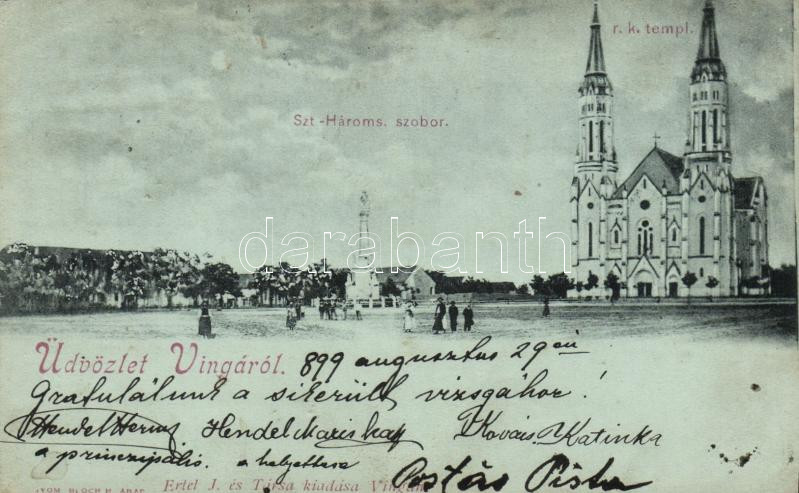 r. k. templ.
Szt -Hároms. szobor.
darabanth
Üdvözlet Vingáról. 899 augusztus 29 én
Gratulálunk a sikerült vizsgához!
Hendel Hendel Mariska Kovács Katinka
a principális. a helyettese
Postás Pista
Ertel J. és Társa kiadása Vingán
NYOM. BLOCH H. ARAD